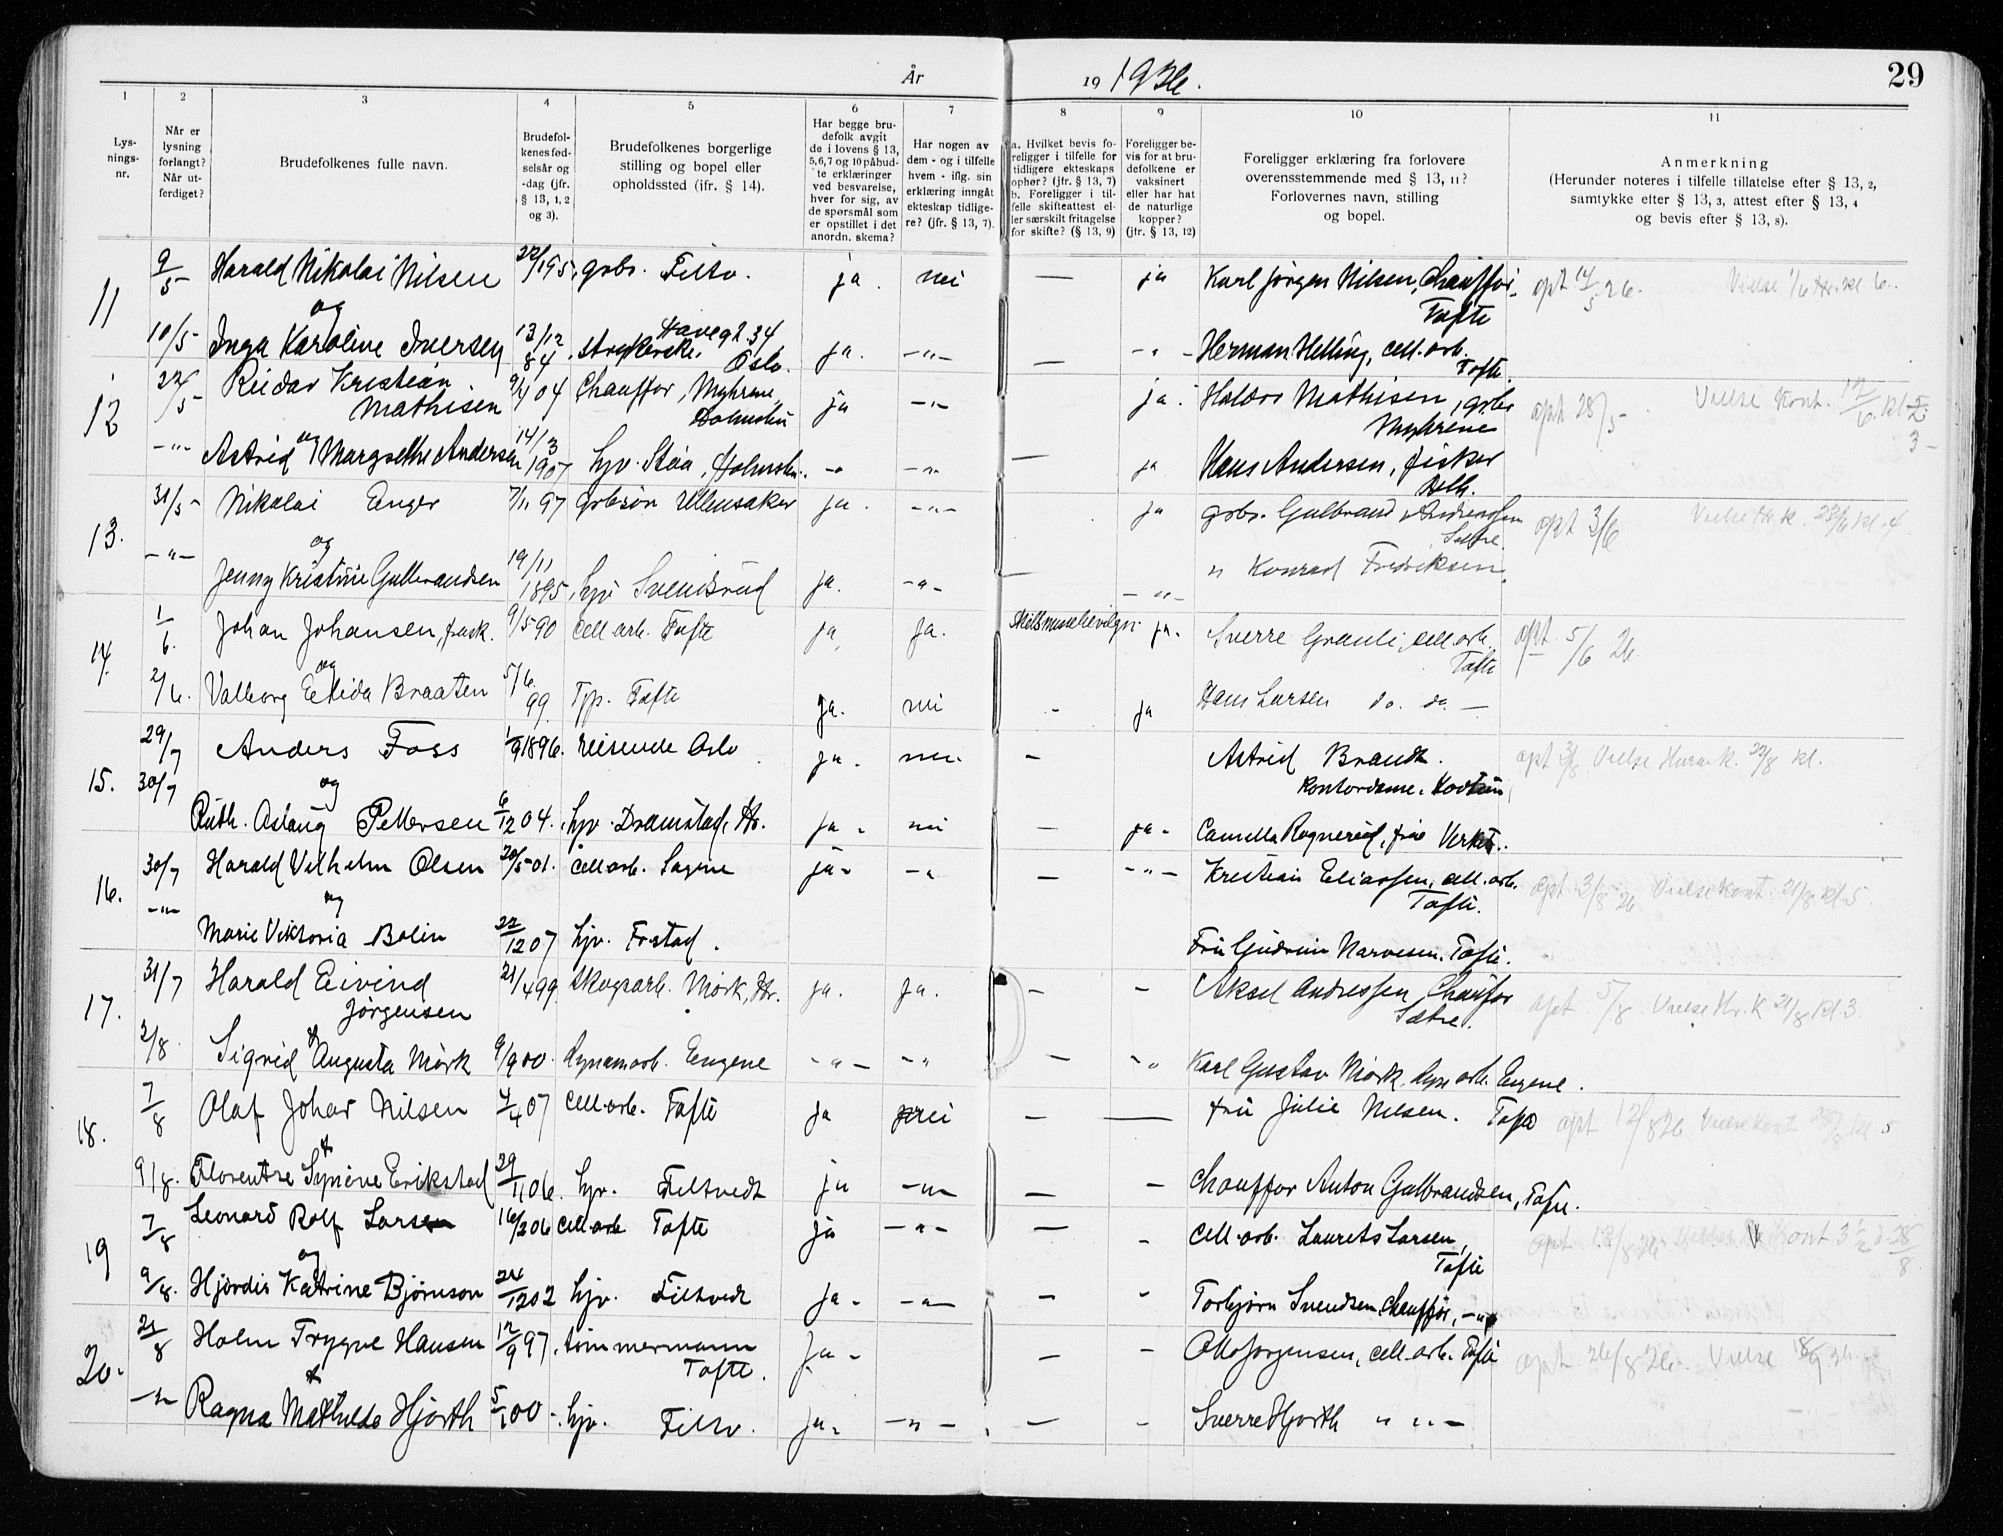 År 19 1926. 29
1 2 3 4 5 6 7 8 9 10 11
Lys-
nings-
nr.
Når er
lysning
forlangt?
Når ut-
ferdiget?
Brudefolkenes fulle navn.
Brudefol-
kenes fød-
selsår og
-dag (jfr.
§ 13, 1, 2
og 3).
Brudefolkenes borgerlige
stilling og bopel eller
opholdssted (jfr. § 14).
Har begge bru-
defolk avgit
de i lovens § 13,
5,6,7 og 10 påbud-
te erklæringer
ved besvarelse,
hver for sig, av
de spørsmål som
er opstillet i det
anordn. skema?
Har nogen av
dem - og i tilfelle
hvem - iflg. sin
erklæring inngåt
ekteskap tidlige-
re? (jfr. § 13, 7).
a. Hvilket bevis fo-
religger i tilfelle for
tidligere ekteskaps
ophør? (jfr. § 13, 7)
b. Foreligger i til-
felle skifteattest el-
ler særskilt fritagelse
for skifte? (§ 13, 9)
Foreligger be-
vis for at bru-
defolkene er
vaksinert
eller har hat
de naturlige
kopper?
(jfr. § 13, 12)
Foreligger erklæring fra forlovere
overensstemmende med § 13, 11?
Forlovernes navn, stilling
og bopel.
Anmerkning
(Herunder noteres i tilfelle tillatelse efter § 13, 2,
samtykke efter § 13, 3, attest efter § 13, 4
og bevis efter § 13, 8).
11 9/5 Harald Nikolai Nilsen 22/1 95, grbr. Filtv. ja. nei — ja Karl Jørgen Nilsen, Chauffør, opt 14/5 26. Vielse 1/6 Hr. kl. 6.
og Tofte
10/5 Inga Karoline Iversen 13/12 84, strykerske, Havegt. 34 Oslo. ja. -"- — -"- Herman Helling, cell. arb.
Tofte.
12 22/5 Reidar Kristian 9/4 04 Chauffør, Myhrene, ja -"- ja. Haldor Mathisen, grbr opt 28/5 Vielse Kont. 12/6 kl 2-3
Mathisen Holmsbu Myhrene
-"- Astrid og Margrethe Andersen 14/3 1907 hjv. Støa, Holmsbu. -" -"- — ja Hans Andersen, fisker
Holm.
13. 31/5 Nikolai Enger 7/11 97 grbsøn Ullensaker ja. -"- ja grbr. Gulbrand Andreassen opt 3/6 Vielse Hr. k. 23/6 kl. 4
og Sætre.
-"- Jenny Kristine Gulbrandsen 19/11 1895, hjv Svensrud ja. -"- — -"- " Konrad Fredriksen.
14. 1/6. Johan Johansen, frask. 9/5 90 cell arb. Tofte ja, ja. ja. Sverre Grauli, cell. arb. opt 5/6 26
og Tofte
2/6. Valborg Elida Braaten 5/6. 99 Typ. Tofte ja. nei - ja Hans Larsen do. do. —
15. 29/7 Anders Foss 1/9 1896. reisende Oslo ja. nei. — Astrid Brandt. opt 3/8 Vielse Hurum k. 22/8 kl.
30/7 og Kontordame.
Ruth. Aslaug Pettersen 6/12 04. hjv. Dramstad, Hr. ja- nei — ja- Camella Rognerud, frue Verket.
16. 30/7 Harald Vilhelm Olsen 20/5 01. cell arb. Sagene ja- -" — -"- Kristian Eliassen, cell. arb. opt. 3/8 26 Vielse Kont. 21/8 kl. 5
og Tofte.
-"- Marie Viktoria Bolin 22/12 07 hjv. Fostad. Fru Gudrun Narvesen. Tofte.
17. 31/7 Harald Eivind 21/4 99 skogsarb. Mørk, Hr. ja. ja. — - Aksel Andressen, Chauffør opt 5/8 Vielse Hr. K 21/8 kl 3.
Jørgensen Sætre.
2/8 Sigrid & Augusta Mørk 9/9 00. dynamarb. Engene -"- -" — -" Karl Gustav Mørk, dyn arb. Engene.
18. 7/8 Olaf Johan Nilsen 4/4 07 Cell-arb. Tofte ja nei — — fru Julie Nilsen. Tofte opt 12/8 26 Vielse kont 28/8 kl 5
&
9/8. Florentse Synøve Erikstad 29/11 06. hjv. Filtvedt ja -"- — - Chauffør Anton Gulbrandsen, Tofte.
19 7/8 Leonard Rolf Larsen 16/2 06 cell-arb Tofte ja -"- — - cell. arb. Laurets Larsen, opt 12/8 26 Kont 3 1/2 28/8
og Tofte
9/8. Hjørdis Katrine Bjørnson 24/12 02 hjv. Filtvedt ja- -"- — - Torbjørn Svendsen, Chauffør, -"-
20. 21/8 Holm Trygve Hansen 12/9 97, tømmermann ja- — - Otto Jørgensen, cell. arb. Tofte opt 26/8 26. Vielse 18/9 26
& Tofte.
-"- Ragna Mathilde Hjorth 5/1 00-. hjv. Filtv. ja- -"- — - Sverre Hjorth " " —